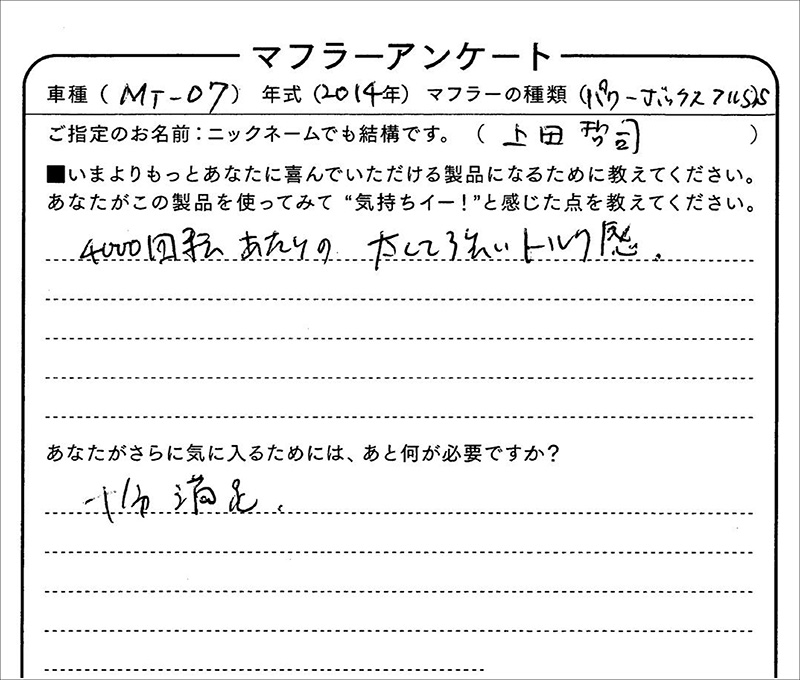 マフラーアンケート
車種(MT-07) 年式(2014年) マフラーの種類(パワーボックスフルSS)
ご指定のお名前:ニックネームでも結構です。(上田哲司)
■いまよりもっとあなたに喜んでいただける製品になるために教えてください。
あなたがこの製品を使ってみて“気持ちイー!”と感じた点を教えてください。
4000回転あたりの トルク感.
あなたがさらに気に入るためには、あと何が必要ですか?
十分満足.